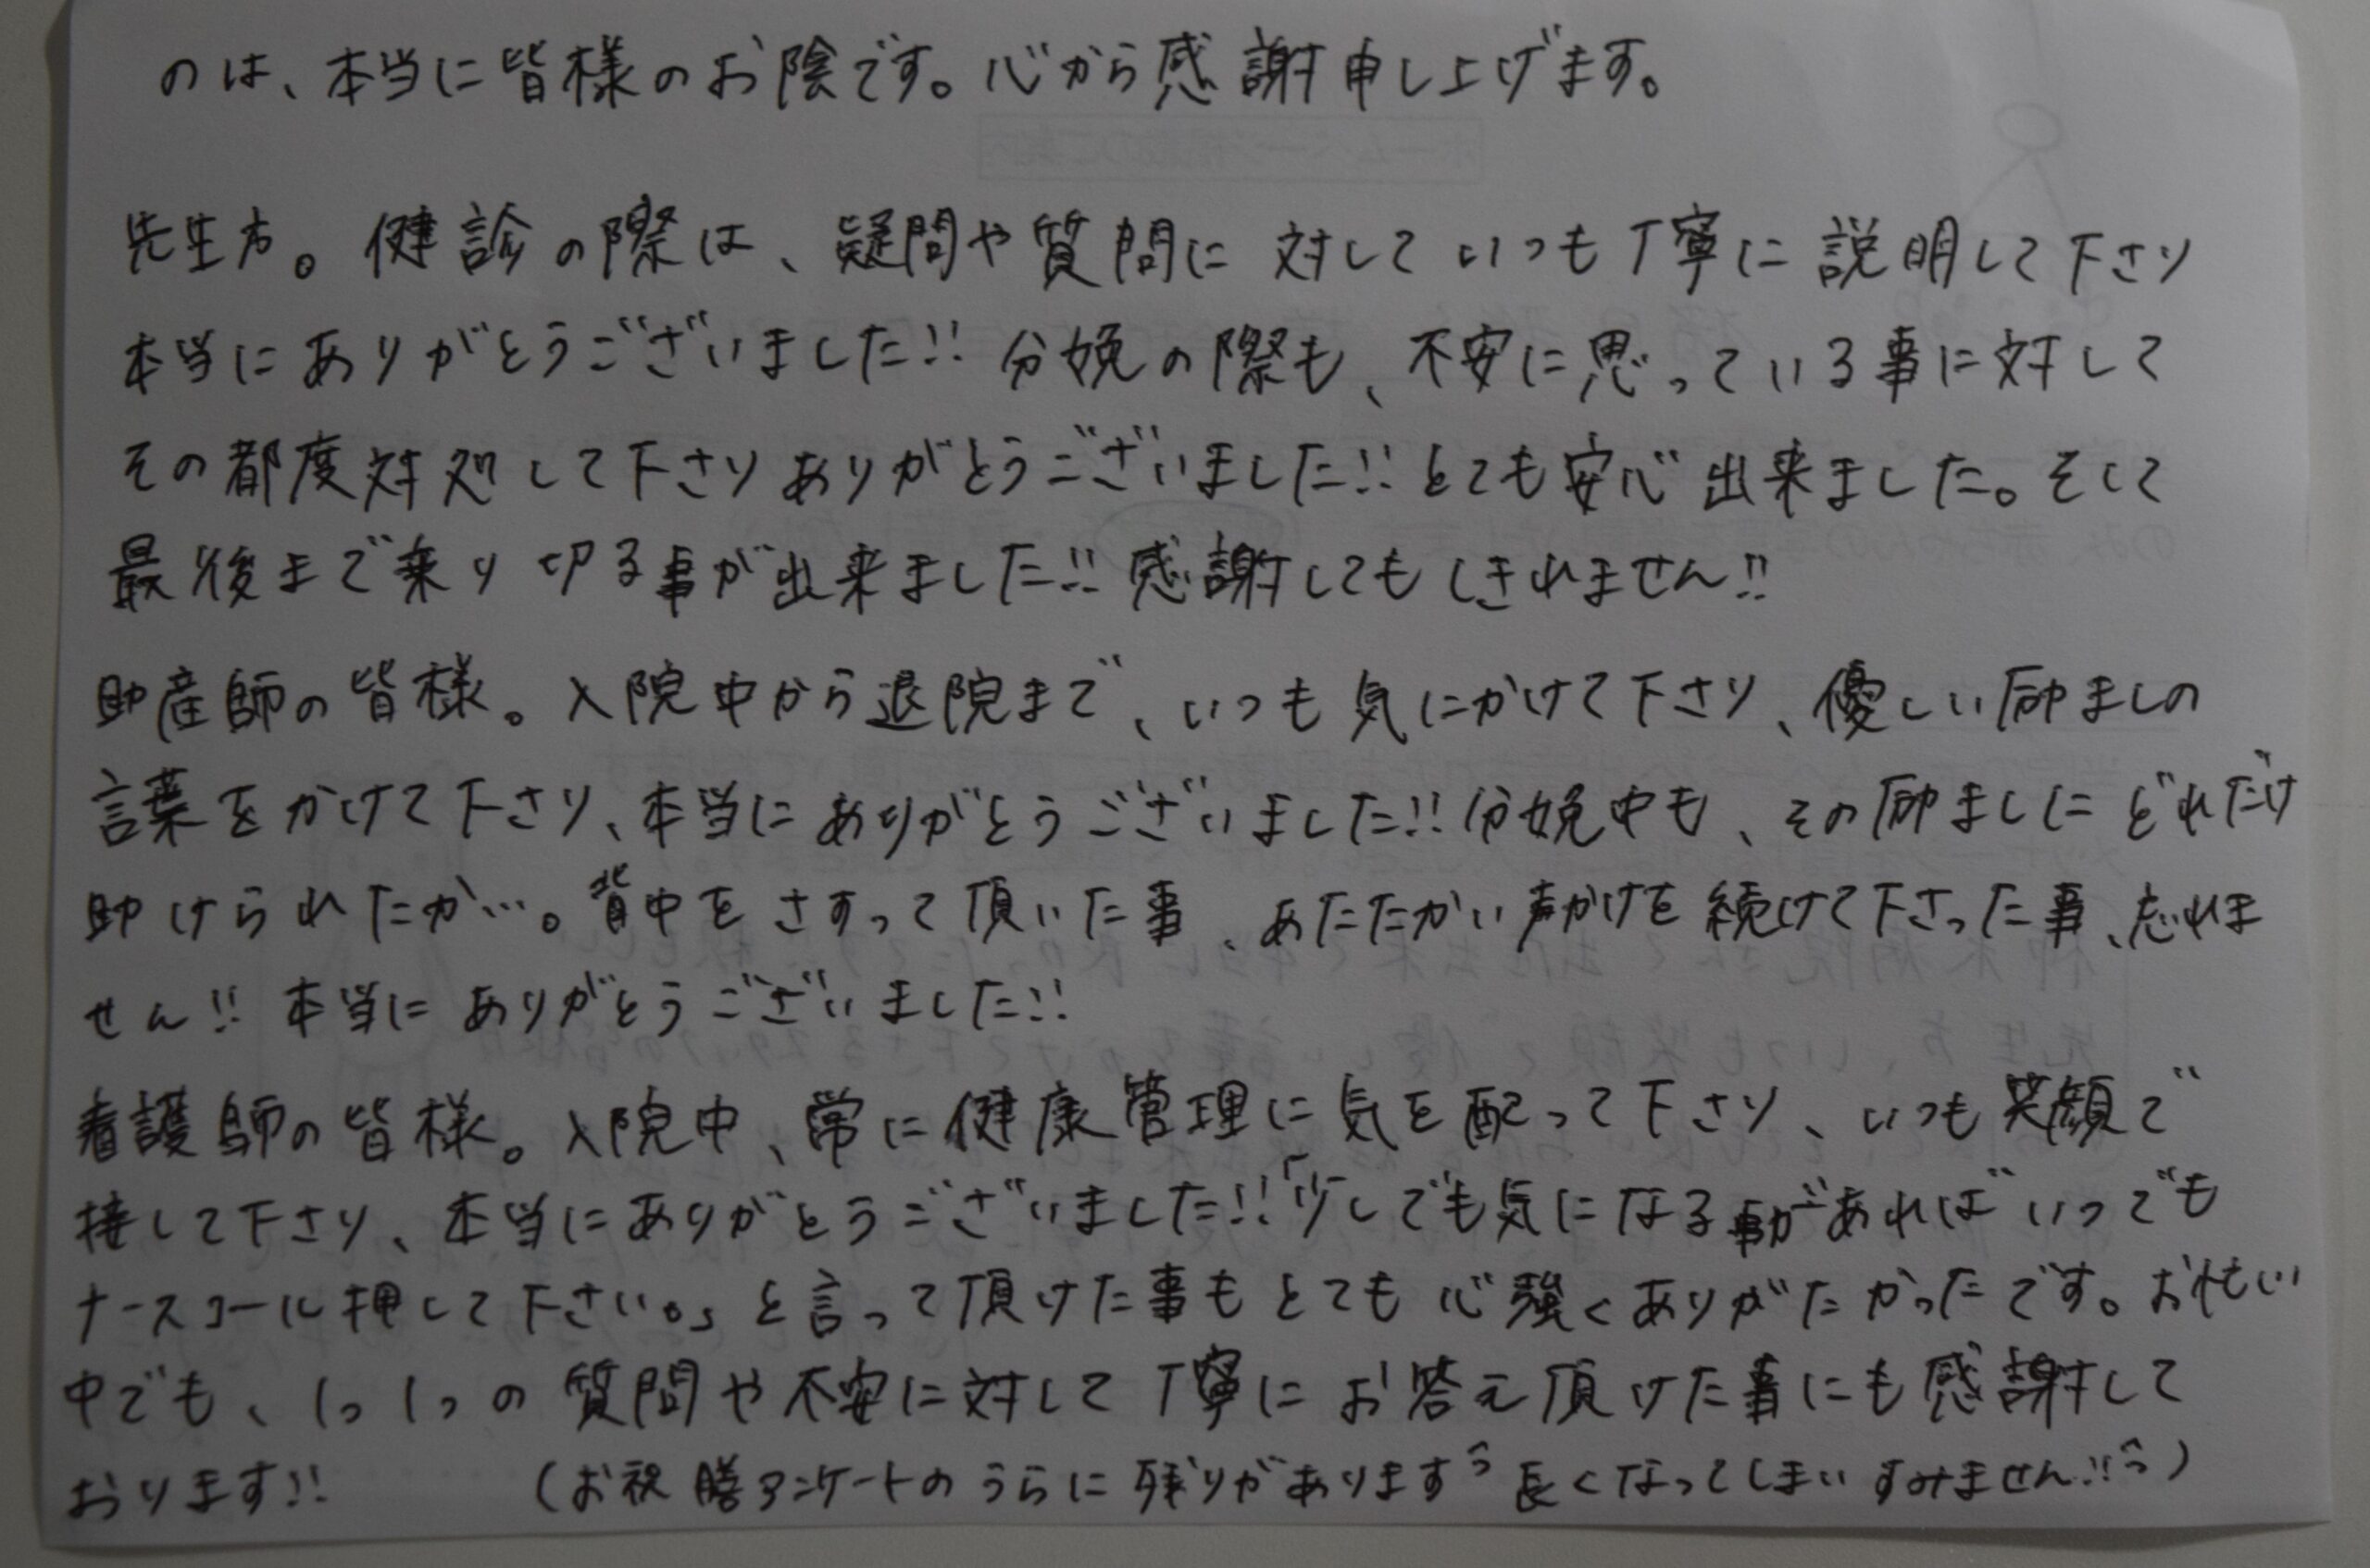 のは、本当に皆様のお陰です。心から感謝申し上げます。
先生方。健診の際は、疑問や質問に対していつも丁寧に説明して下さり
本当にありがとうございました!! 分娩の際も、不安に思っている事に対して
その都度対処して下さりありがとうございました!! とても安心出来ました。そして
最後まで乗り切る事が出来ました!! 感謝してもしきれません!!
助産師の皆様。入院中から退院まで、いつも気にかけて下さり、優しい励ましの
言葉をかけて下さり、本当にありがとうございました!! 分娩中も、その励ましにどれだけ
助けられたか…。背中をさすって頂いた事、あたたかい声かけを続けて下さった事、忘れま
せん!! 本当にありがとうございました!!
看護師の皆様。入院中、常に健康管理に気を配って下さり、いつも笑顔で
接して下さり、本当にありがとうございました!!「少しでも気になる事があればいつでも
ナースコール押して下さい。」と言って頂けた事もとても心強くありがたかったです。お忙しい
中でも、1つ1つの質問や不安に対して丁寧にお答え頂けた事にも感謝して
おります!! (お祝膳アンケートのうらに残りがあります 長くなってしまいすみません!!)